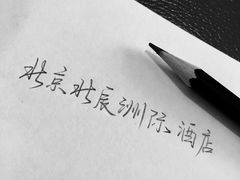 北京北辰洲际酒店